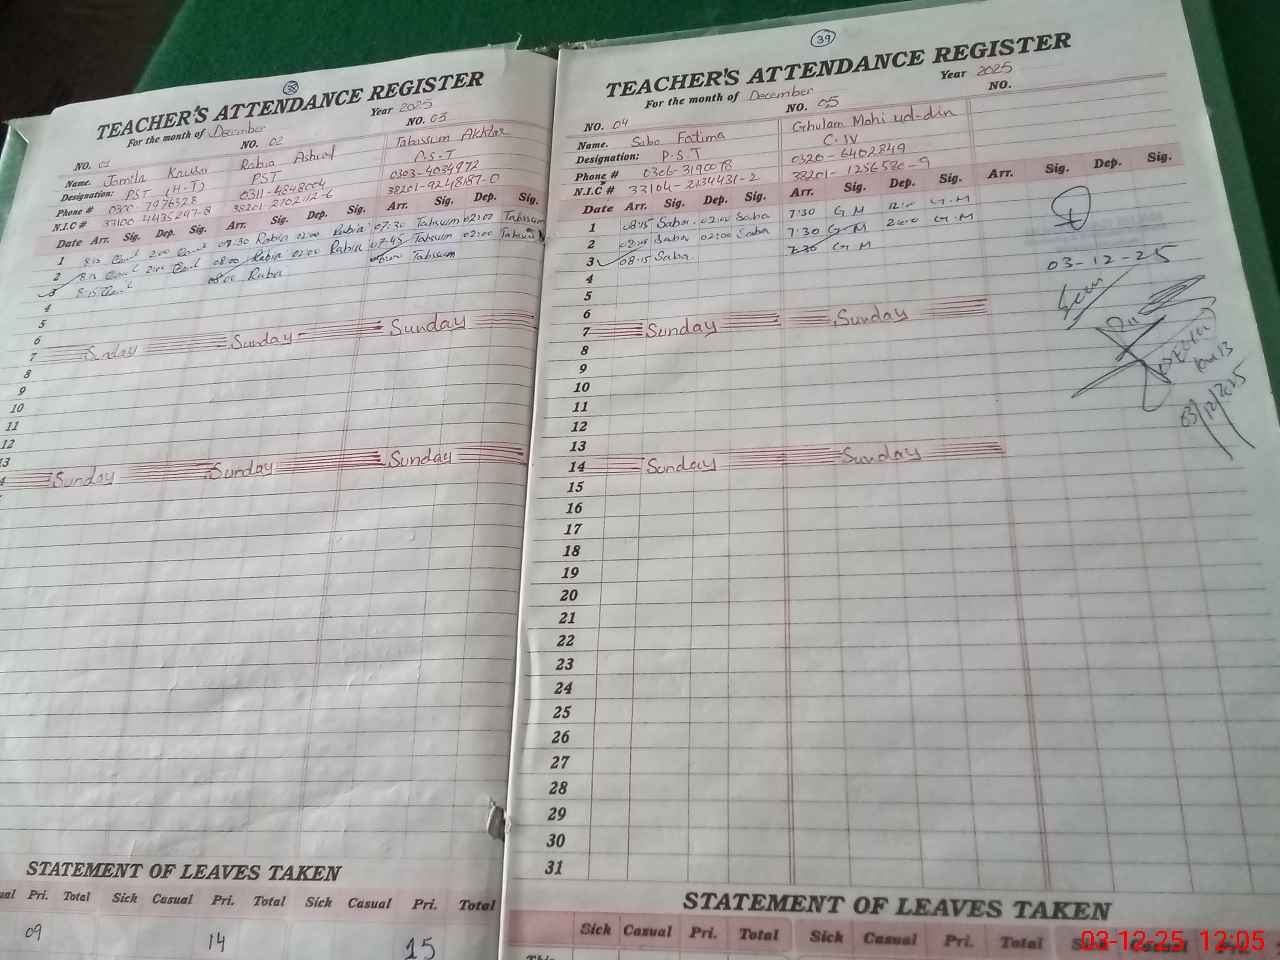 38
TEACHER'S ATTENDANCE REGISTER
For the month of December Year 2025
NO. 01 NO. 02 NO. 03
Name. Jamila Rabia Ashraf Tabassum Akhtar
Designation: PST (H-T) PST P.S.T
Phone # 0311-4848004 0303-4034972
N.I.C # 38201-9248187-0
Date Arr. Sig. Dep. Sig. Arr. Sig. Dep. Sig. Arr. Sig. Dep. Sig.
1 8:15 2:00 07:30 Rabia 02:00 Rabia 07:30 Tabassum 02:00 Tabassum
2 8:15 2:00 08:00 Rabia 02:00 Rabia 07:45 Tabassum 02:00 Tabassum
3 8:15 08:00 Rabia Tabassum
4
5
6
7 Sunday Sunday Sunday
8
9
10
11
12
13
Sunday Sunday Sunday
STATEMENT OF LEAVES TAKEN
Pri. Total Sick Casual Pri. Total Sick Casual Pri. Total
09 14 15
39
TEACHER'S ATTENDANCE REGISTER
For the month of December Year 2025
NO. 04 NO. 05 NO.
Name. Saba Fatima Ghulam Mahi ud-din
Designation: P.S.T C.IV
Phone # 0306-3190078 0320-6402849
N.I.C # 33104-2134431-2 38201-1256580-9
Date Arr. Sig. Dep. Sig. Arr. Sig. Dep. Sig. Arr. Sig. Dep. Sig.
1 08:15 Saba 02:00 Saba 7:30 G.M G.M
2 08:15 Saba 02:00 Saba 7:30 G.M 2:00 G.M
3 08:15 Saba 7:30 G.M
4 03-12-25
5 Seen
6
7 Sunday Sunday
8
9
10
11 03/12/2025
12
13
14 Sunday Sunday
15
16
17
18
19
20
21
22
23
24
25
26
27
28
29
30
31
STATEMENT OF LEAVES TAKEN
Sick Casual Pri. Total Sick Casual Pri. Total Sick Casual Pri. Total
03-12-25 12:05